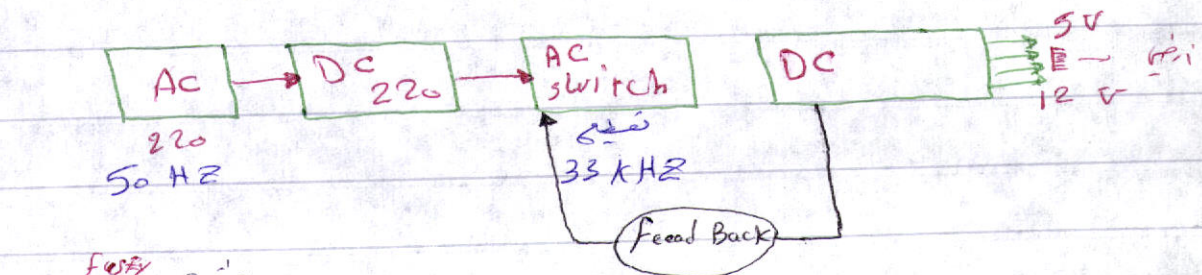 AC
220
50 HZ
DC
220
AC
switch
تقطيع
33 KHZ
DC
5 V
12 V
Feead Back